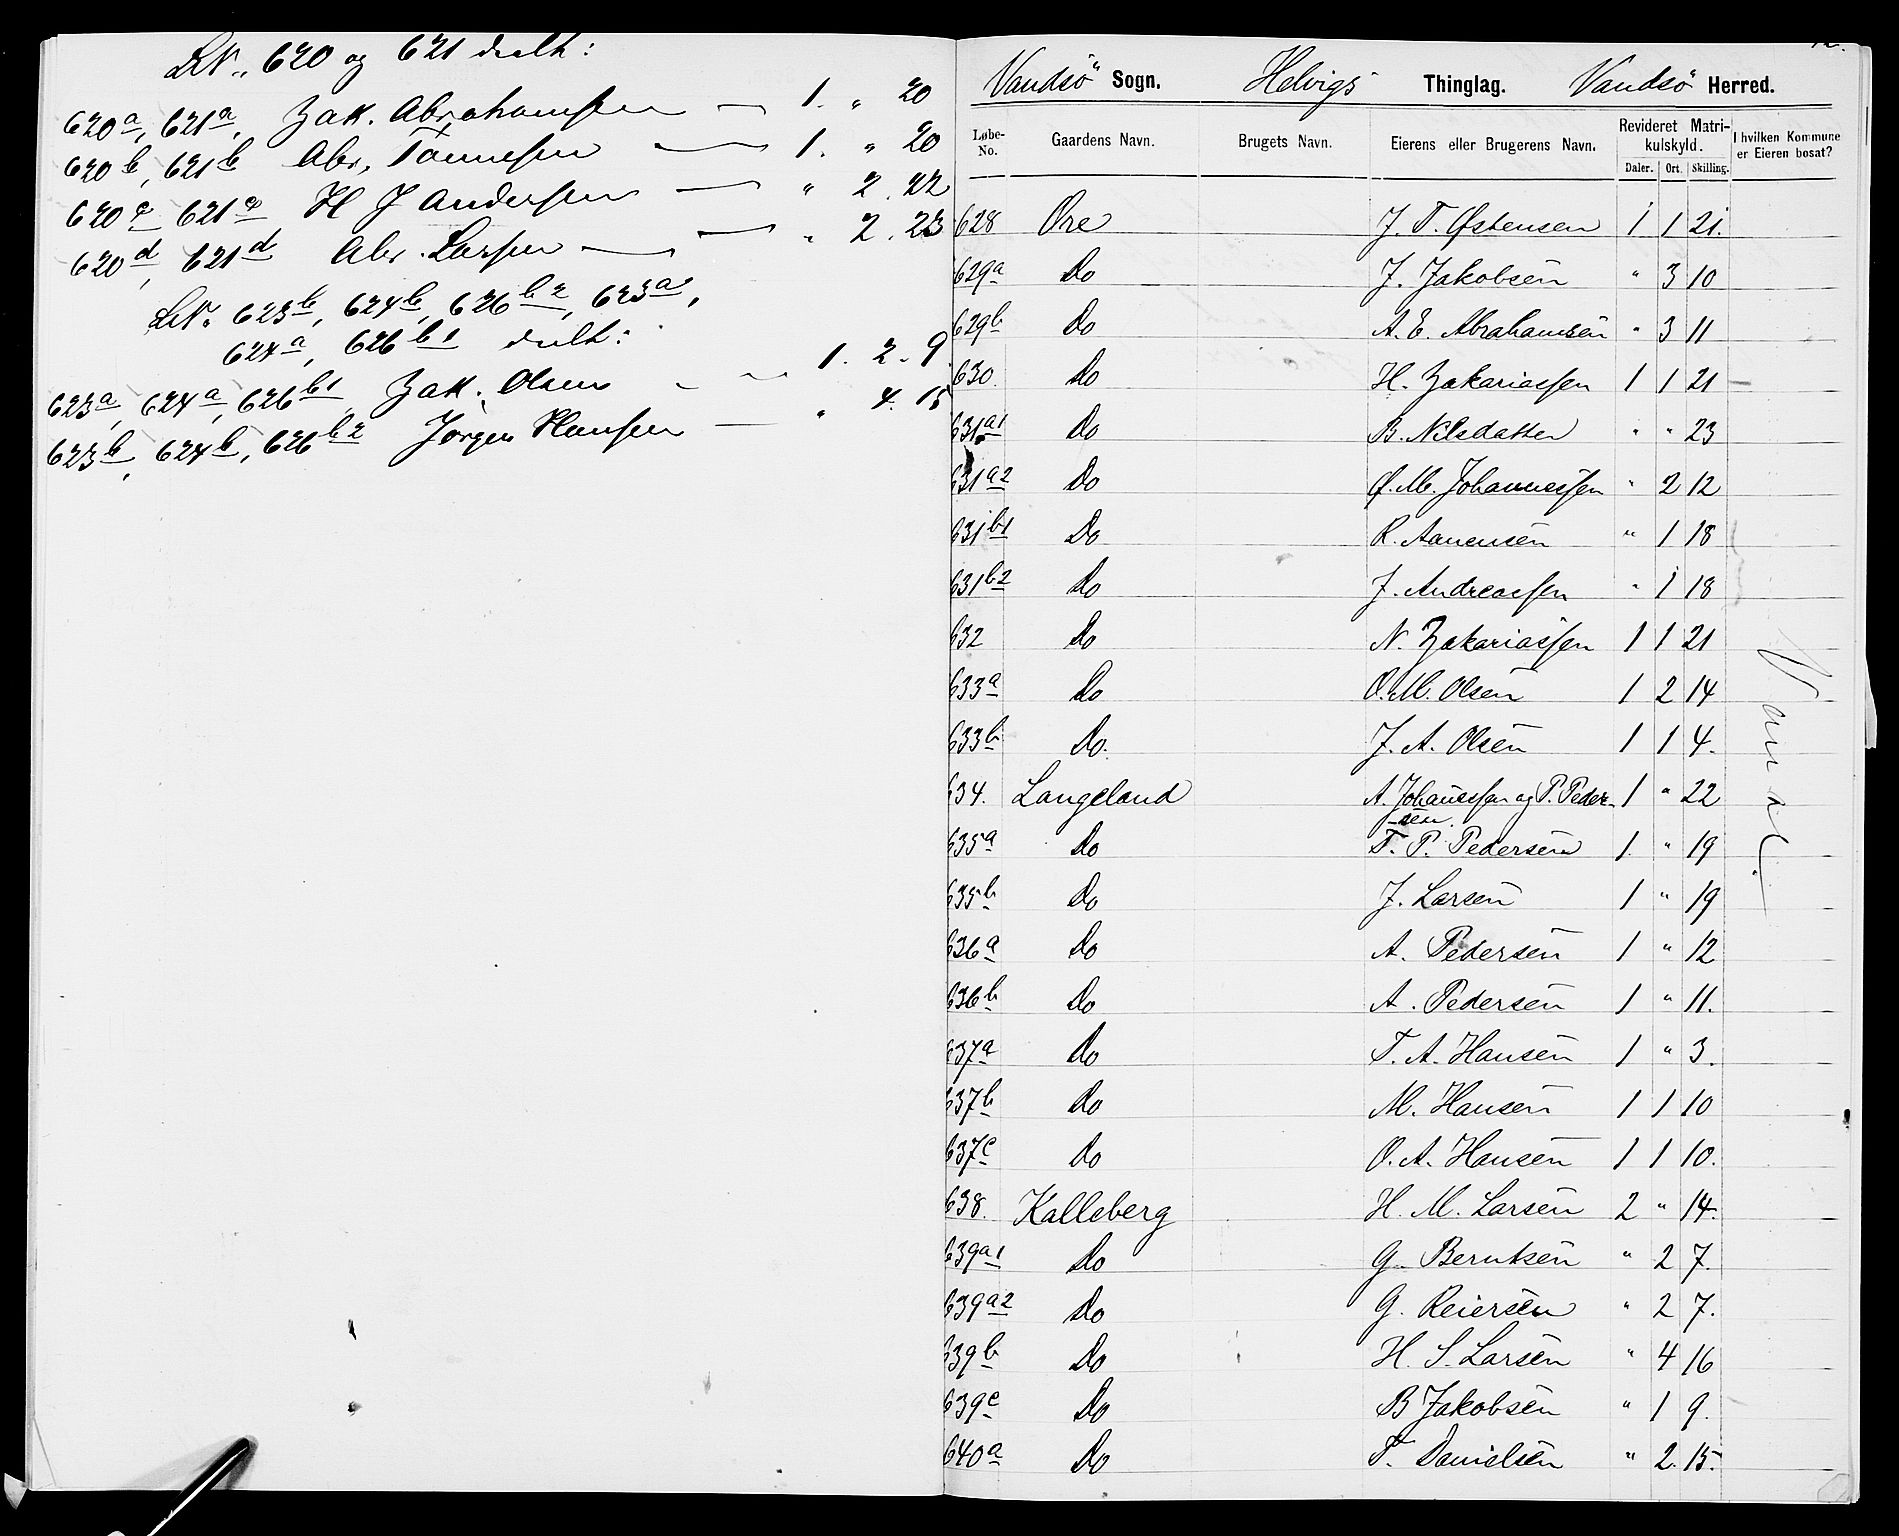 LN. 620 og 621 deelt:
620a, 621a, Zak. Abrahamsen — 1. " 20
620b, 621b Abr. Tønnesen — 1. " 20
620c, 621c H J Andersen — " 2. 22
620d, 621d Abr. Larsen — " 2. 23
LN. 623b, 624b, 626b2, 623a,
624a, 626b1 deelt:
623a, 624a, 626b1 Zak. Olsen — 1. 2. 9
623b, 624b, 626b2 Jørgen Hansen — " 4. 15
12.
Vandsö Sogn. Helvigs Thinglag. Vandsö Herred.
Løbe-No. Gaardens Navn. Brugets Navn. Eierens eller Brugerens Navn. Revideret Matrikulskyld. Daler. Ort. Skilling. I hvilken Kommune er Eieren bosat?
628 Ore J. T. Østensen 1 1 21.
629a Do J. Jakobsen " 3 10
629b Do A. E. Abrahamsen " 3 11
630. Do H. Zakariassen 1 1 21
631a1 Do B. Nilsdatter " " 23
631a2 Do O. M. Johannessen " 2 12
631b1 Do R. Aanensen " 1 18
631b2 Do J. Andreassen " 1 18
632 Do N. Zakariassen 1 1 21
633a Do O. M. Olsen 1 2 14
633b Do. J. A. Olsen 1 1 4.
634. Langeland A. Johanessen og P. Peder- 1 " 22
-sen.
635a Do T. P. Pedersen 1. " 19
635b Do J. Larsen 1 " 19
636a Do A. Pedersen 1 " 12
636b Do A. Pedersen 1 " 11.
637a Do T. A. Hansen 1 " 3.
637b Do M. Hansen 1 1 10
637c Do O. A. Hansen 1 1 10.
638. Kalleberg H. M. Larsen 2 " 14.
639a1 Do G. Berntsen " 2 7.
639a2 Do G. Reiersen " 2 7.
639b Do H. S. Larsen " 4 16
639c Do B Jakobsen " 1 9.
640a Do T. Danielsen " 2. 15.